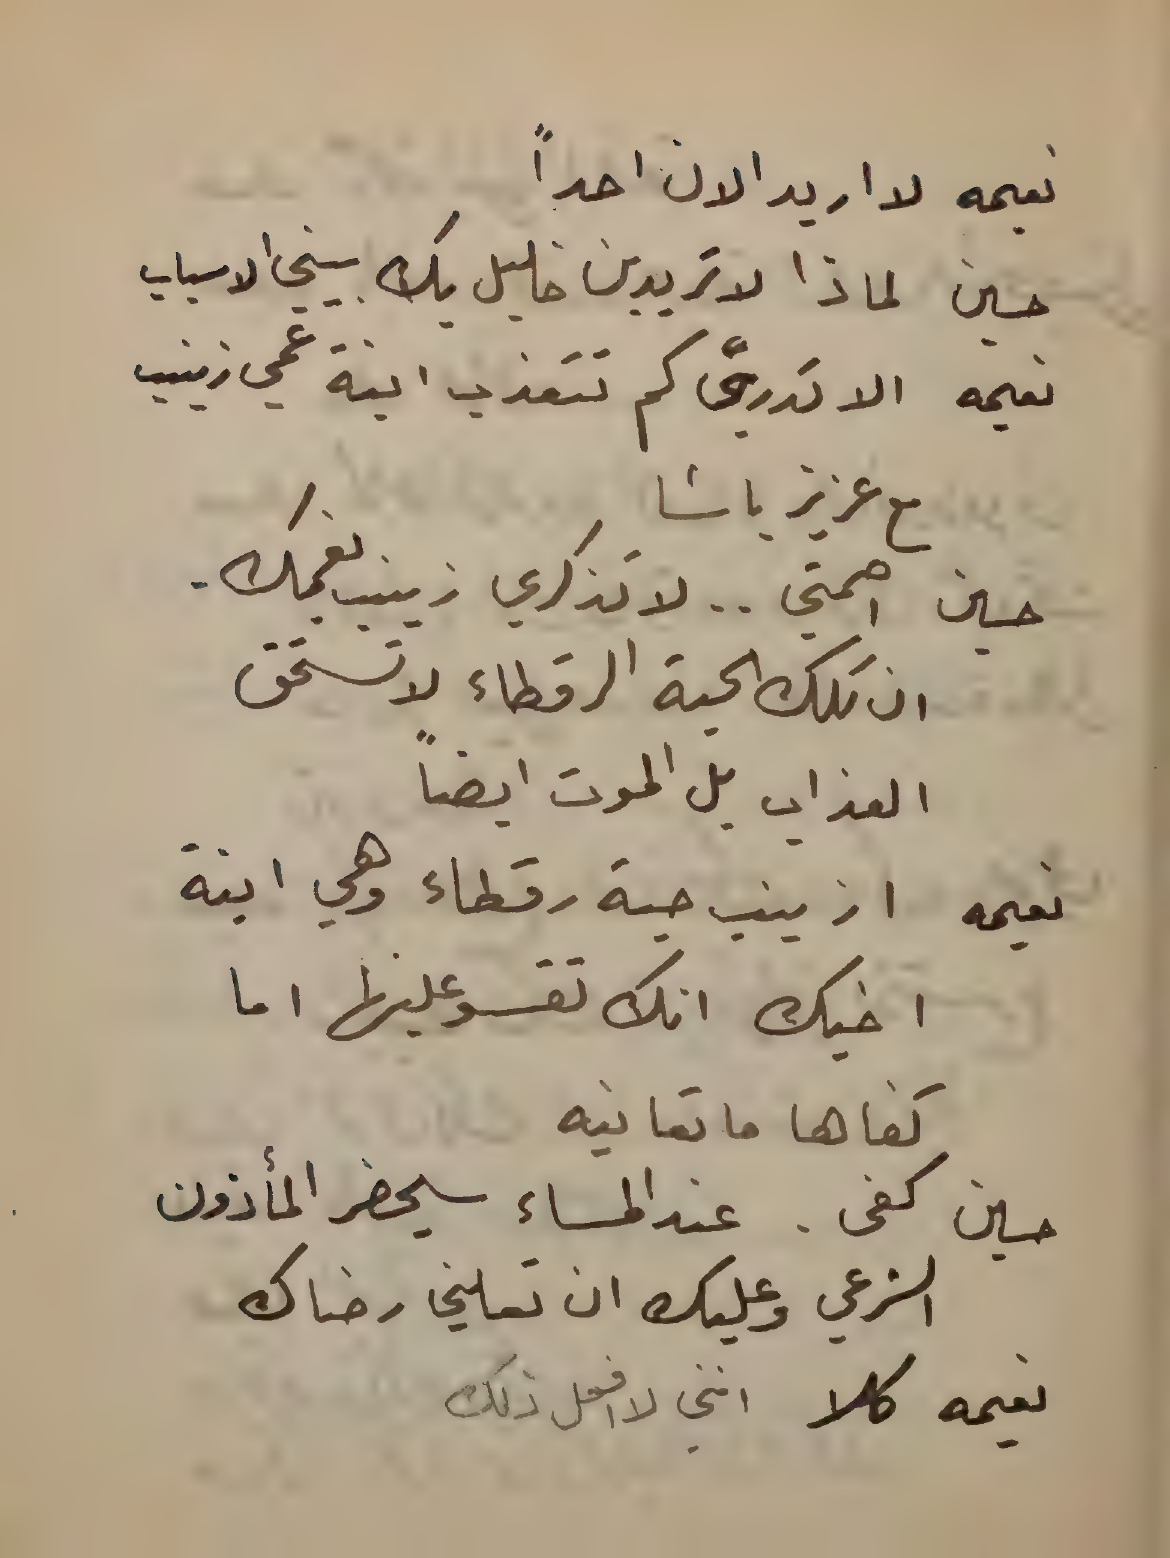 نعيمه لا اريد الان احداً
حسين لماذا لا تريدين خليل بك بيني الاسباب
نعيمه الا تدرين كم تتعذب ابنة عمي زينب
مع عزيز باشا
حسين اصمتي .. لا تذكري زينب بفمك .
ان تلك الحية الرقطاء لا تستحق
العذاب بل الموت ايضاً
نعيمه ازينب حية رقطاء وهي ابنة
اخيك انك تقسو عليها اما
كفاها ما تعانيه
حسين كفى . عند المساء سيحضر المأذون
الشرعي وعليك ان تعلني رضاك
نعيمه كلا انني لا افعل ذلك